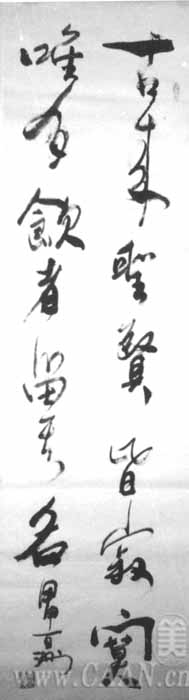 古来聖賢皆寂寞
唯有飲者留其名
WWW.CAAN.CN